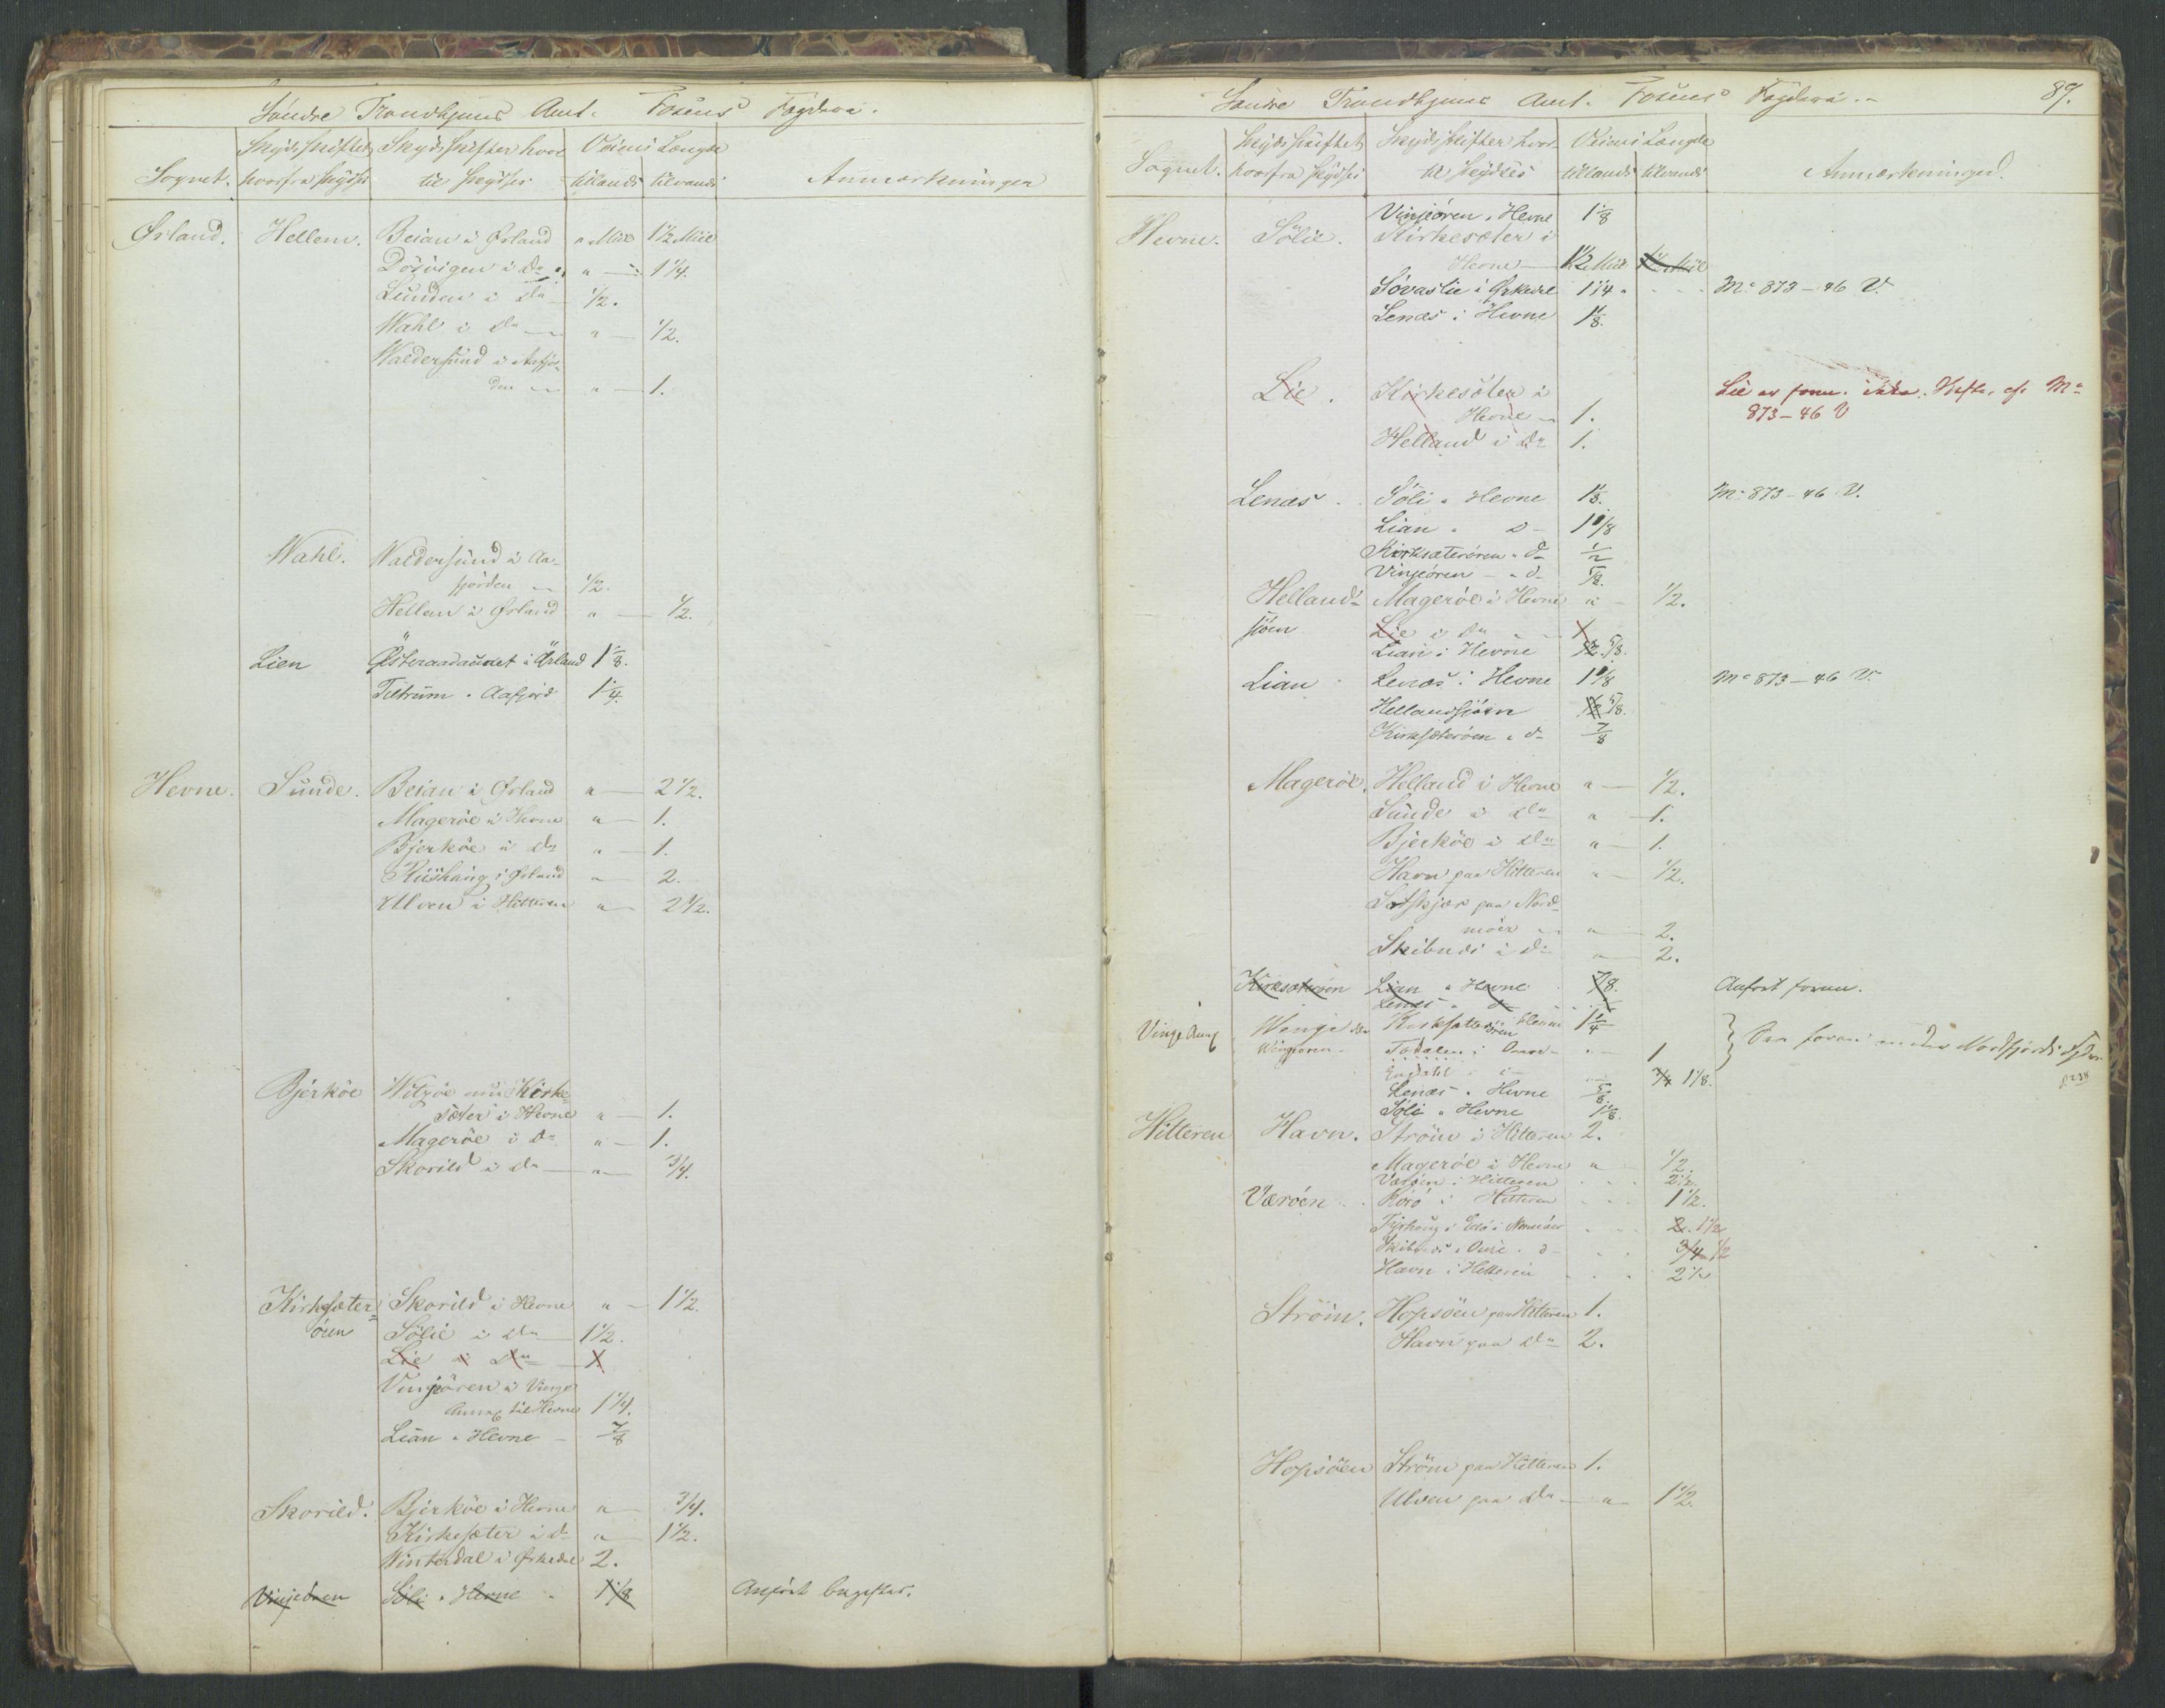 Söndre Trondhjems Amt. Fosens Fogderi.
Sognet. Skydsskiftet hvorfra skydses Skydsskifter hvor til skydses Veiens Længde tillands tilvands Anmærkninger
Ørland. Hellem. Beian i Ørland " Miil 1 1/2 Miil
Dösvigen i Do " 1 1/4.
Lunden i Do 1/2.
Wahl i Do " 1/2.
Valdersund i Aafjor-
den " 1.
Wahl. Valdersund i Aa-
fjörden 1/2.
Hellem i Ørland " 1/2.
Lien Østeraadaunet i Ørland 1 1/8.
Tiltrum " Aafjord 1 1/4.
Hevne. Sunde. Beian i Ørland " 2 1/2.
Magerõe i Hevne " 1.
Bjerköe i Do " 1.
Küshaug i Ørland " 2.
Ulven i Hitteren " 2 1/2.
Bjerköe Witzöe nu Kirke-
sæter i Hevne " 1.
Magerõe i Do " 1.
Skorild i Do " 3/4.
Kirkesæter= Skorild i Hevne " 1 1/2.
ören Sölie i Do 1 1/2.
Lie i Do 1
Vinjeören i Vinge
Annex til Hevne 1 1/4.
Lian " Hevne 7/8
Skorild. Bjerköe i Hevne " 3/4.
Kirkesæter i Do " 1 1/2.
Winterdal i Ørkedal 2.
Vinjeören Söli " Hevne 1 1/8 Anført bagefter.
Söndre Trondhjems Amt. Fosens Fogderi. 89.
Sognet. Skydsskiftet hvorfra skydses Skydsskifter hvor til skydses Veiens Længde tillands tilvands Anmærkninger.
Vinjeören " Hevne 1 1/8
Hevne. Sölie. Kirkesæter i
Hevne 1 1/2 Miil 1/2 Miil
Sövaslie i Ørkedal 1 1/4 " Mo 873-46 V.
Lenæs i Hevne 1 1/8.
Lie. Kirkesæter i Lie er forn. ikke cfr Mo
Hevne 1. 873-46 V
Helland i Do 1.
Lenæs Söli " Hevne 1 1/8. Mo 873-46 V.
Lian " D 1 1/8
Kirksæterören " d 1/2
Vinjeören " d 5/8.
Helland- Magerõe i Hevne " 1/2.
sjöen Lie i Do 1
Lian i Hevne 1/2 5/8.
Lian Lenæs i Hevne 1 1/8 Mo 873-46 V.
Hellandsjöen 1/2 5/8.
Kirksæterören " d 7/8
Magerõe. Helland i Hevne " 1/2.
Sunde i Do " 1.
Bjerköe i Do " 1.
Havn paa Hitteren " 1/2.
Sötskjær paa Nord-
möer " 2.
Skibnæs i Do " 2.
Kirksæterören Lian " Hevne 7/8. Anført foran.
Lenæs " d
Vinge Anx Wenge Kirksæterören Hevne 1 1/4
Vingeören Todalen i Aure " 1
Engdahl i 3/4 1 1/8.
Lenæs " Hevne 5/8.
Söli " Hevne 1 1/8.
Hitteren Havn. Ström i Hitteren 2.
Magerõe i Hevne " 1/2.
Værõen i Hitteren 2 1/2.
Værõen Korö i Hitteren 1 1/2.
Tyrhaug i Edö i Nordmöer 2. 1 1/2
Skibnæs i Aure " d 3/4 1/2
Havn i Hitteren 2 1/2
Ström. Hopsöen paa Hitteren 1.
Havn paa Do 2.
Hopsöen Ström paa Hitteren 1.
Ulven paa Do " 1 1/2.